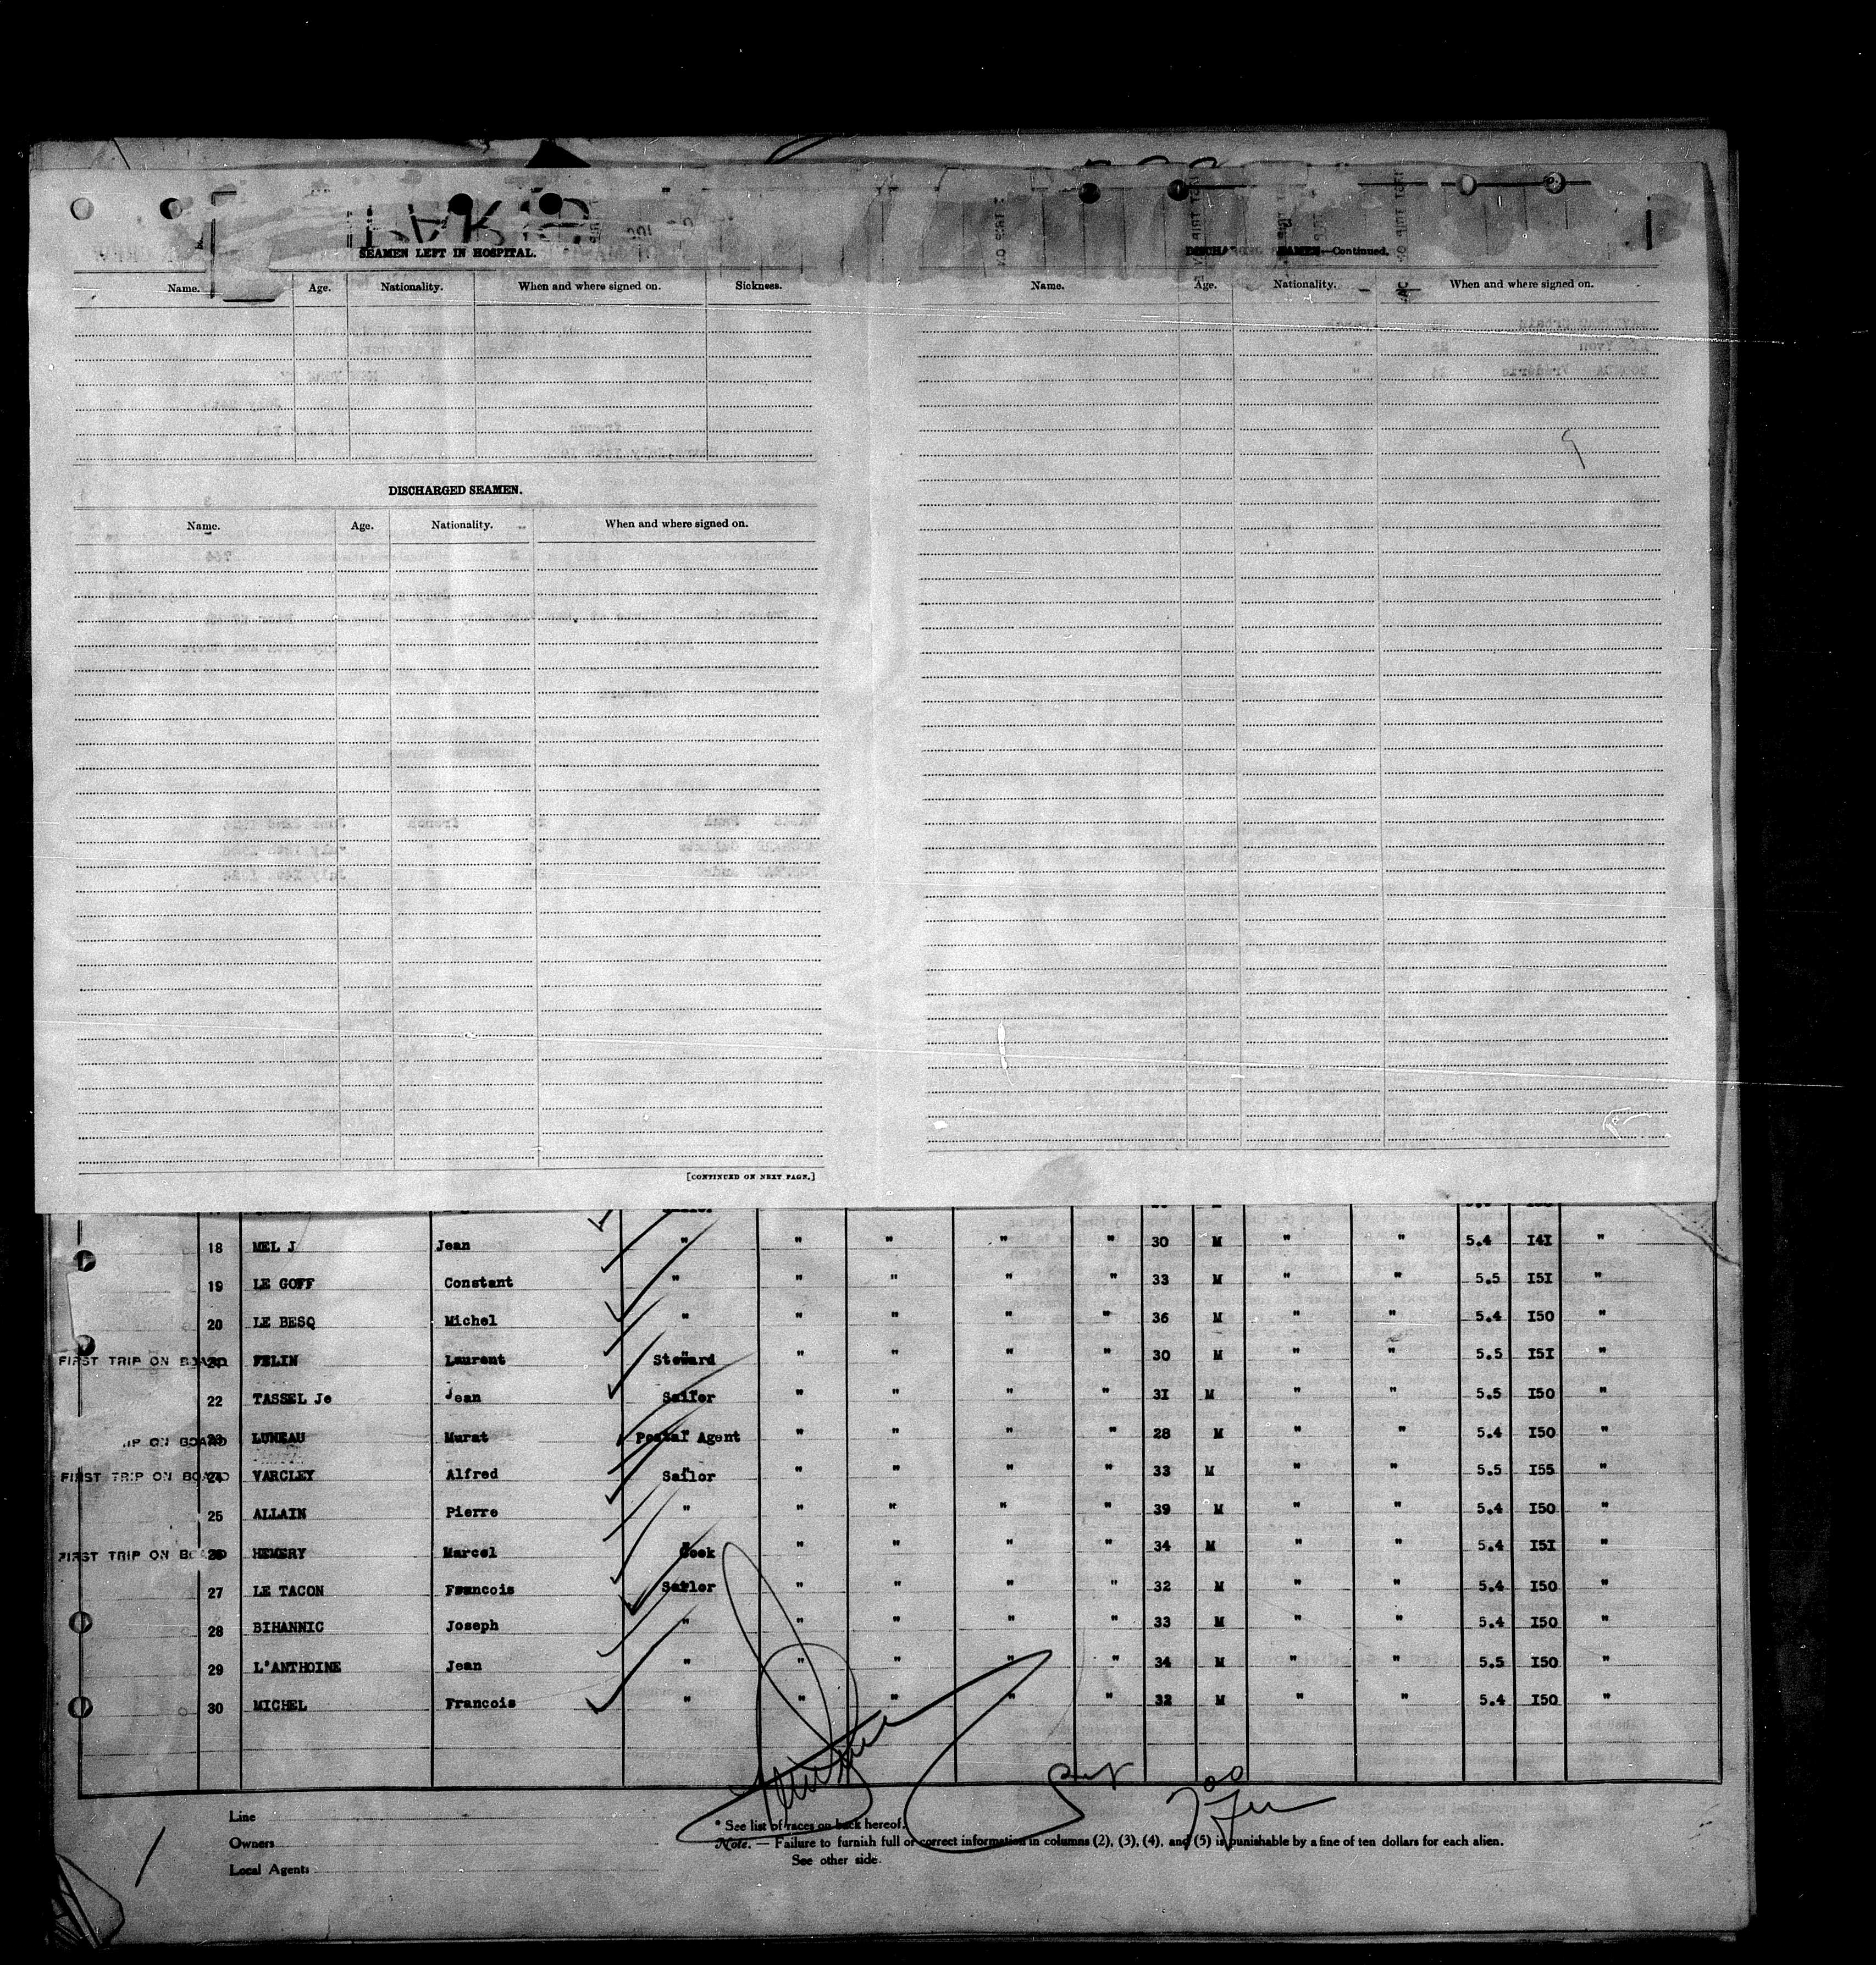 SEAMEN LEFT IN HOSPITAL.
Name. Age. Nationality. When and where signed on. Sickness.
DISCHARGED SEAMEN.
Name. Age. Nationality. When and where signed on.
[CONTINUED ON NEXT PAGE.]
DISCHARGED SEAMEN—Continued.
Name. Age. Nationality. When and where signed on.
18 MEL J Jean " " " " " 30 M " " 5.4 I4I "
19 LE GOFF Constant " " " " " 33 M " " 5.5 I5I "
20 LE BESQ Michel " " " " " 36 M " " 5.4 I50 "
FIRST TRIP ON BOARD 21 FELIN Laurent Steward " " " " 30 M " " 5.5 I5I "
22 TASSEL Je Jean Sailor " " " " 3I M " " 5.5 I50 "
IP ON BOARD 23 LUNEAU Murat Postal Agent " " " " 28 M " " 5.4 I50 "
FIRST TRIP ON BOARD 24 VARCLEY Alfred Sailor " " " " 33 M " " 5.5 I55 "
25 ALLAIN Pierre " " " " " 39 M " " 5.4 I50 "
FIRST TRIP ON BOARD 26 HEMERY Marcel Cook " " " " 34 M " " 5.4 I5I "
27 LE TACON Francois Sailor " " " " 32 M " " 5.4 I50 "
28 BIHANNIC Joseph " " " " " 33 M " " 5.4 I50 "
29 L'ANTHOINE Jean " " " " " 34 M " " 5.5 I50 "
30 MICHEL Francois " " " " " 32 M " " 5.4 I50 "
Line
Owners
Local Agents
* See list of races on back hereof.
Note. — Failure to furnish full or correct information in columns (2), (3), (4), and (5) is punishable by a fine of ten dollars for each alien.
See other side.